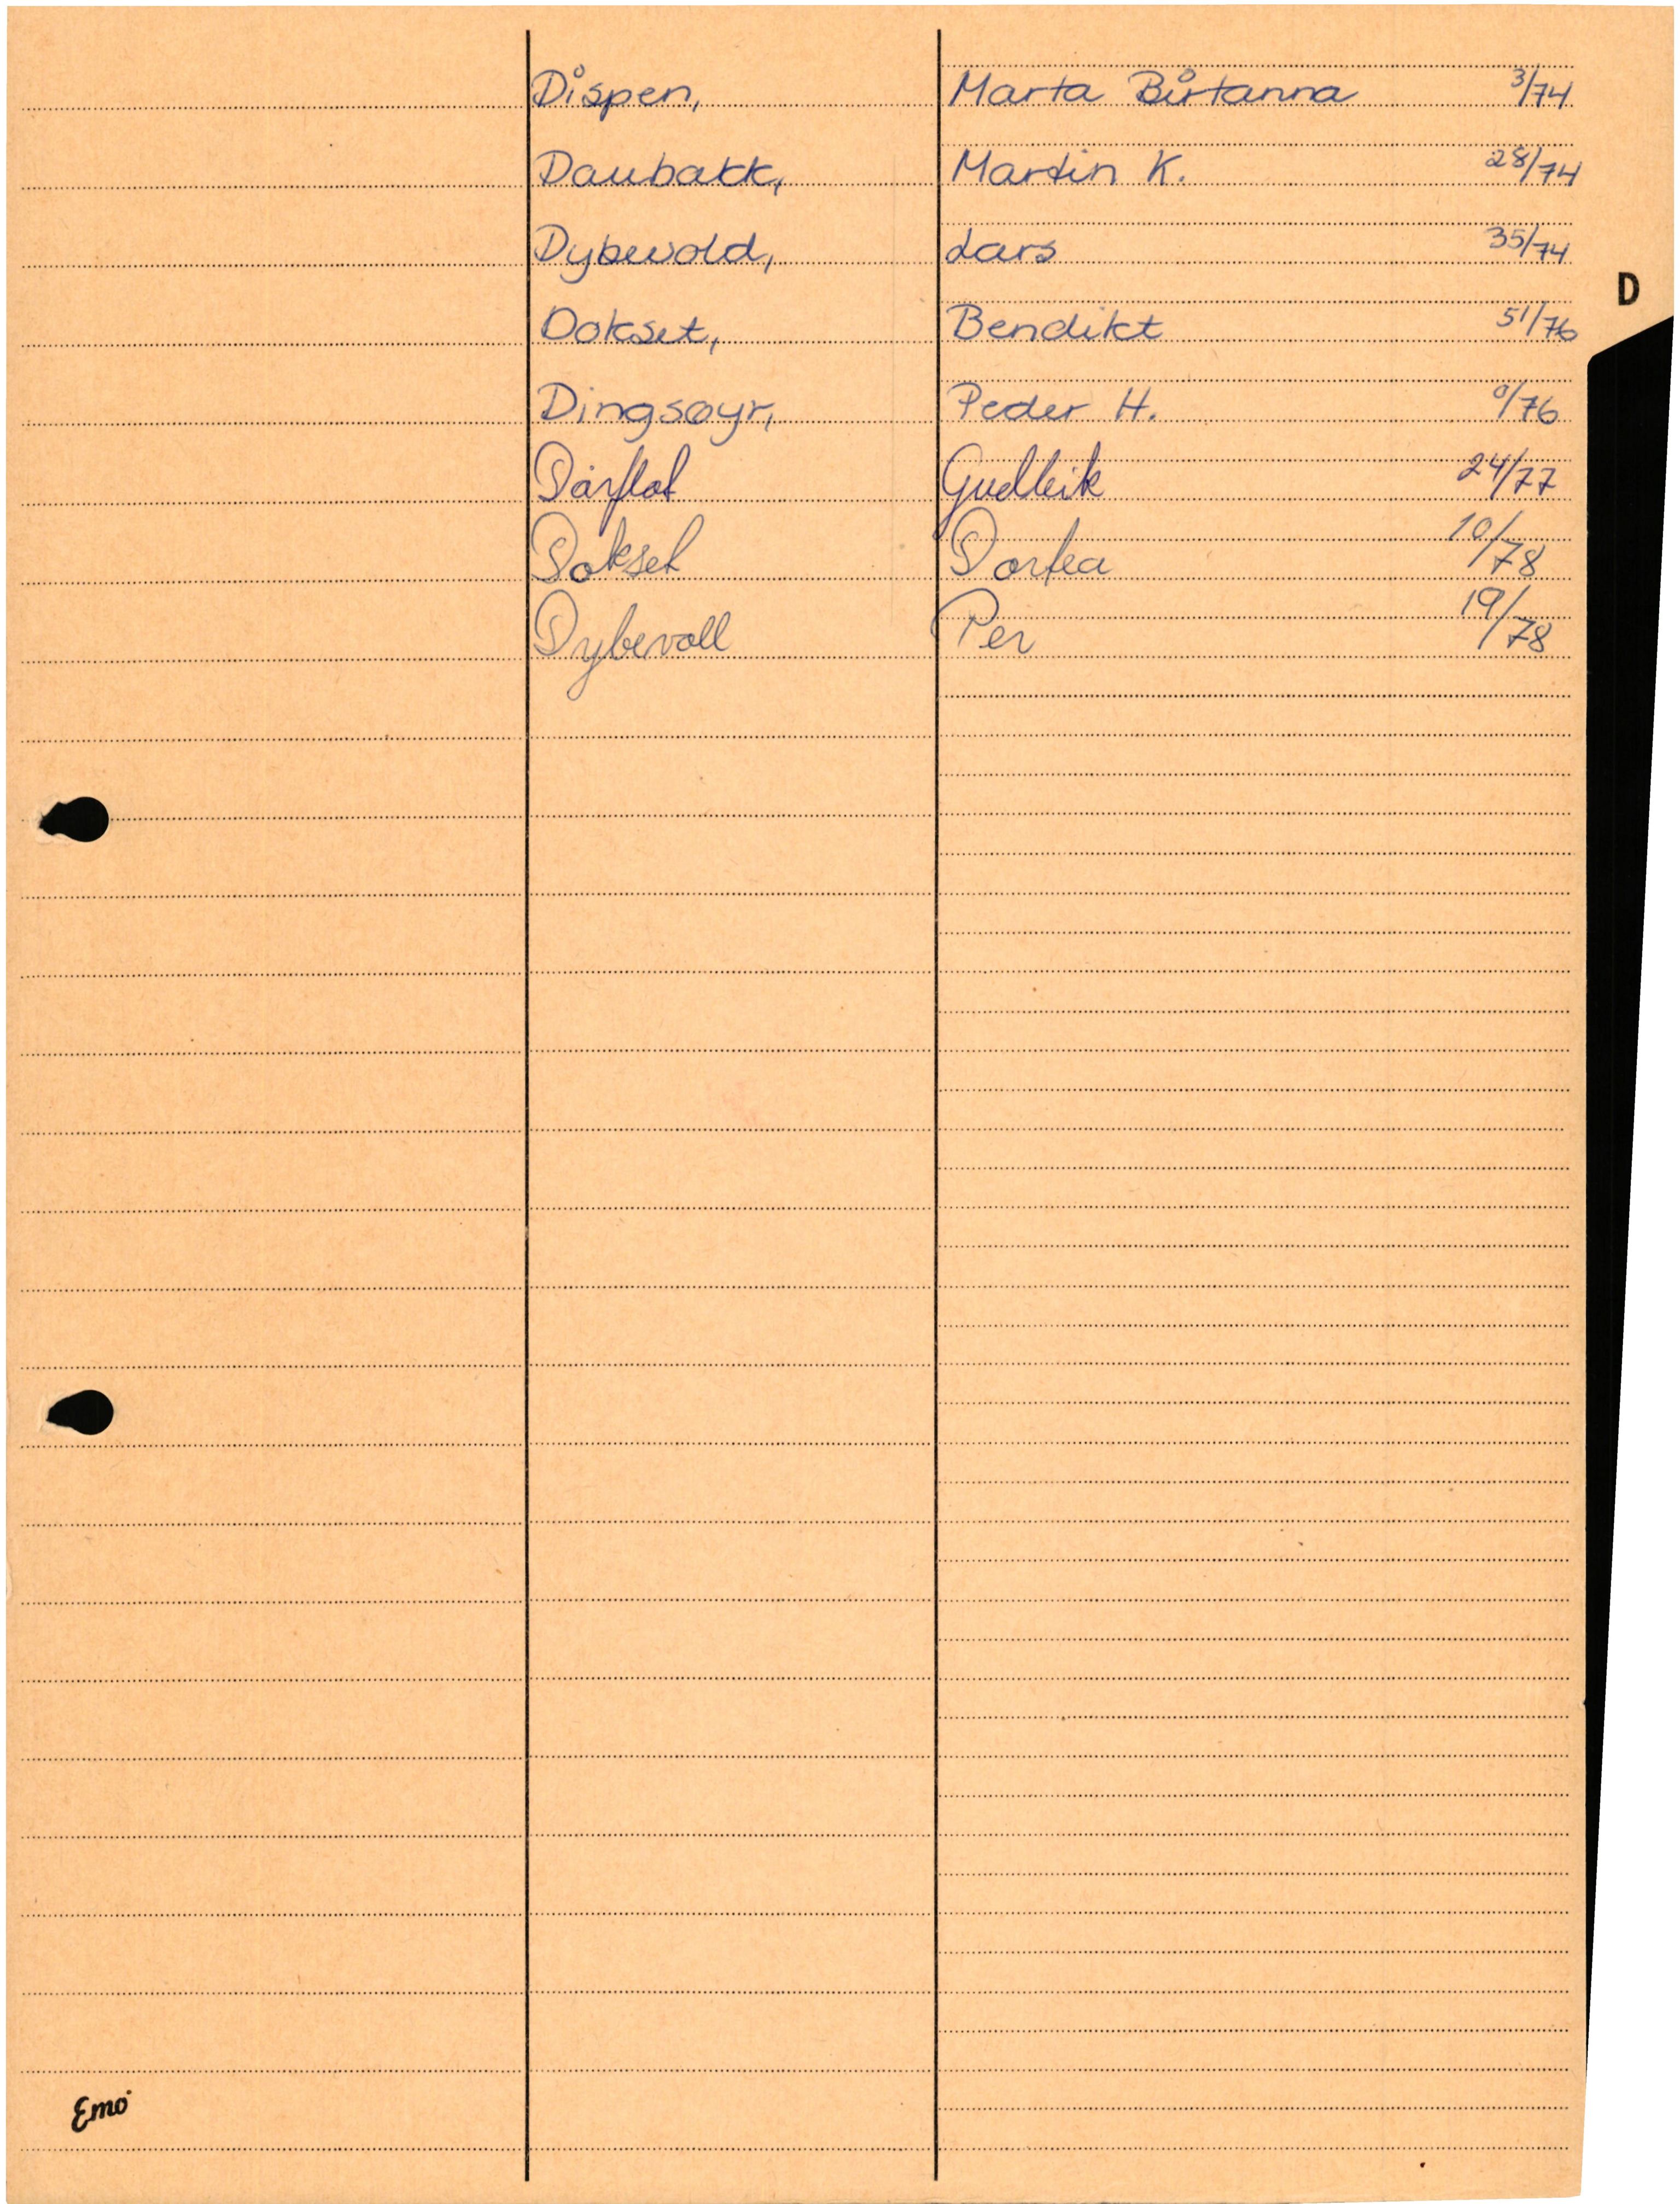 Dispen, Marta Birtanna 3/74
Daubakk, Martin K. 28/74
Dybevold, Lars 35/74
D
Dokset, Bendikt 51/76
Dingsøyr, Peder H. 9/76
Dårflot Gudleik 24/77
Dokset Dortea 10/78
Dybevoll Per 19/78
Emo